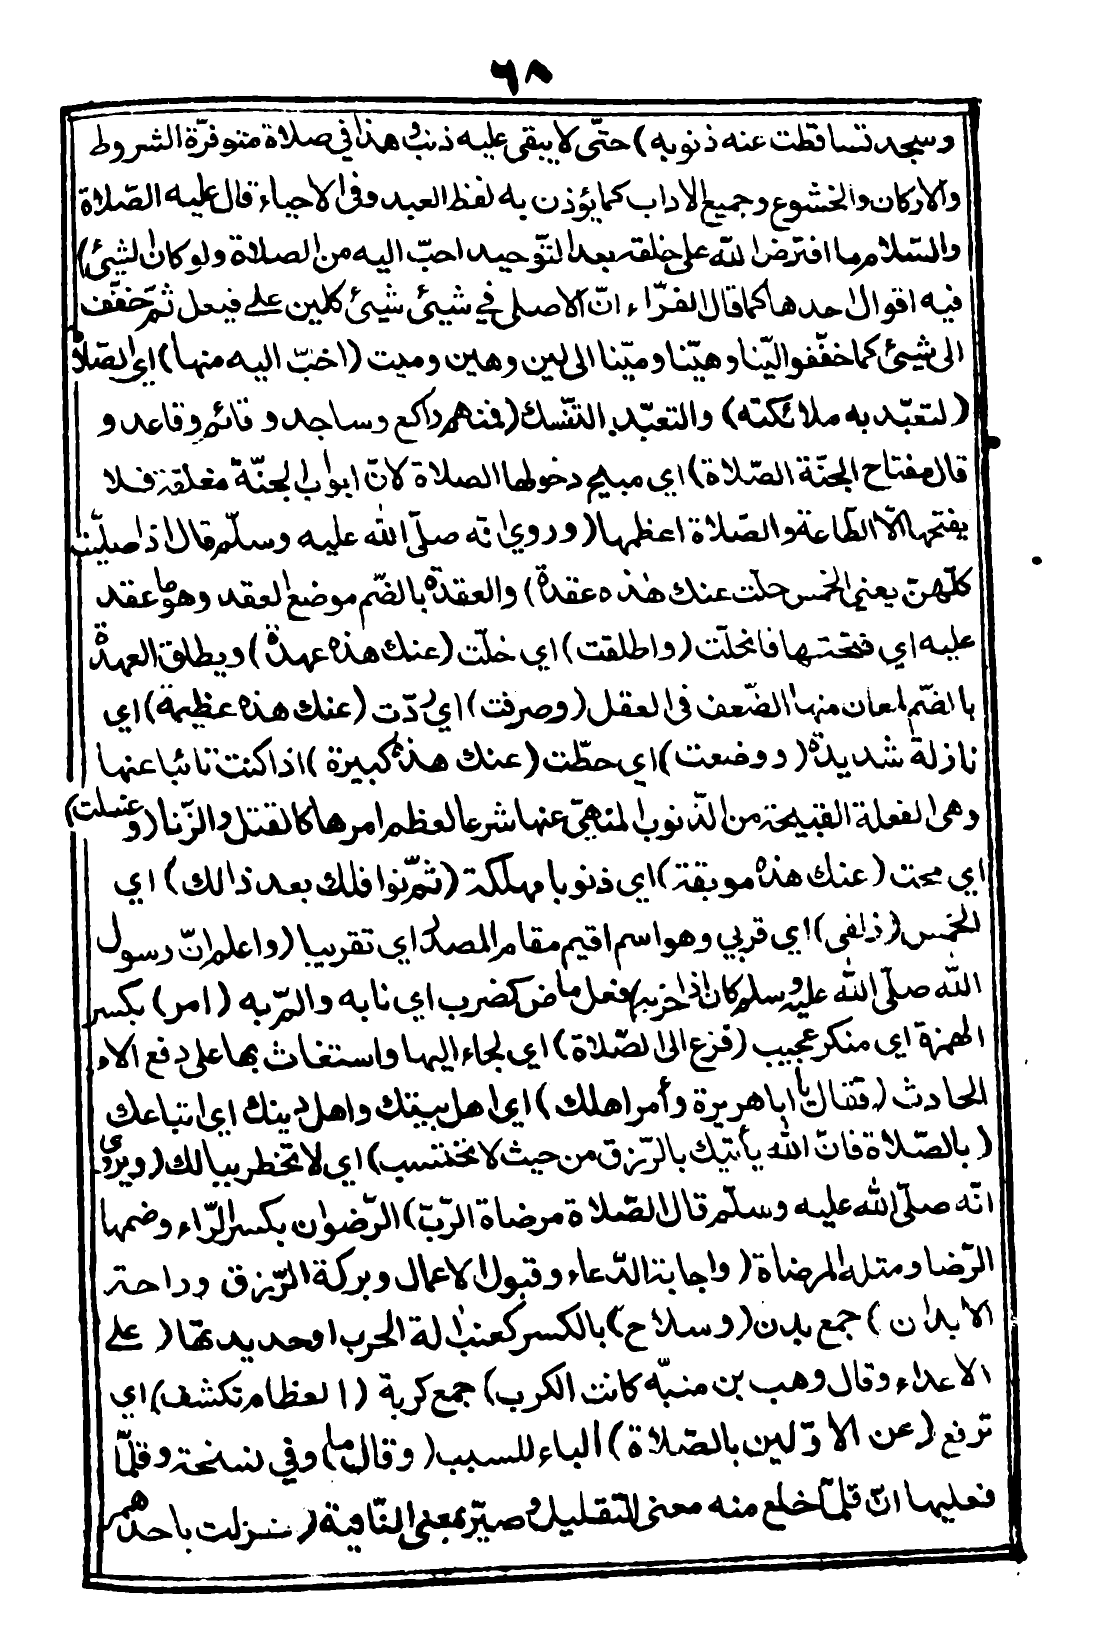 ٦٨
وسجد تساقطت عنه ذنوبه) حتّى لا يبقى عليه ذنب هذا في صلاة متوفرّة الشروط
والاركان والخشوع وجميع الاداب كما يؤذن به لفظ العبد وفى الاحياء قال عليه الصّلاة
والسّلام ما افترض الله على خلقه بعد التّوحيد احبّ اليه من الصلاة ولو كان لشيئ)
فيه اقوال احدها كما قال الفرّاء انّ الاصلى في شيئ شيئ كلين على فيعل ثمّ خفّف
الى شيئ كما خفّفوا ليّنا وهيّنا وميّنا الى لين وهين وميت (احبّ اليه منها) اي الصّلاة
(لتعبّد به ملائكته) والتعبّد التنّسك (فمنهم راكع وساجد و قائم وقاعد و
قال مفتاح الجنّة الصّلاة) اي مبيح دخولها الصلاة لانّ ابواب الجنّة مغلقة فلا
يفتحها الّا الطّاعة والصّلاة اعظمها (وروي انّه صلّى الله عليه وسلّم قال اذا صليّت
كلّهنّ يعني الخمس حلّت عنك هذه عقدة) والعقدة بالضّم موضع العقد وهو ما عقد
عليه اي فتحتها فانحلّت (واطلقت) اي خلّت (عنك هذه عهدة) ويطلق العهدة
بالضّم لمعان منها الضّعف فى العقل (وصرفت) اي ردّت (عنك هذه عظيمة) اي
نازلة شديدة (ووضعت) اي حطّت (عنك هذه كبيرة) اذا كنت تائبا عنها
وهى الفعلة القبيحة من الذّنوب المنهيّ عنها شرعا لعظم امرها كالقتل والزّنا (وغسلت)
اي محت (عنك هذه موبقة) اي ذنوبا مهلكة (ثمّ نوافلك بعد ذالك) اي
الخمس (زلفى) اي قربي وهو اسم اقيم مقام المصدر اي تقريبا (واعلم انّ رسول
الله صلّى الله عليه وسلم كان اذا حزبه) فعل ماض كضرب اي نابه والمّ به (امر) بكسر
الهمزة اي منكر عجيب (فزع الى الصّلاة) اي لجاء اليها واستغاث بها على دفع الامر
الحادث (فقال يا ابا هريرة وأمر اهلك) اي اهل بيتك واهل دينك اي اتباعك
(بالصّلاة فانّ الله يأتيك بالرّزق من حيث لا تحتسب) اي لا تخطر ببالك (ويروى
انّه صلّى الله عليه وسلّم قال الصّلاة مرضاة الربّ) الرّضوان بكسر الرّاء وضمها
الرّضا ومثله المرضاة (واجابة الدّعاء وقبول الاعمال وبركة الرّزق وراحة
الابدان) جمع بدن (وسلاح) بالكسر كعنب الة الحرب او حديدتها (على
الاعداء وقال وهب بن منبّه كانت الكرب) جمع كربة (العظام تكشف) اي
ترفع (عن الاوّلين بالصّلاة) الباء للسبب (وقال ما) وفي نسخة وقلّما
فعليها انّ قلّما خلع منه معنى التّقليل وصيّر بمعنى النّافية (نزلت باحدهم